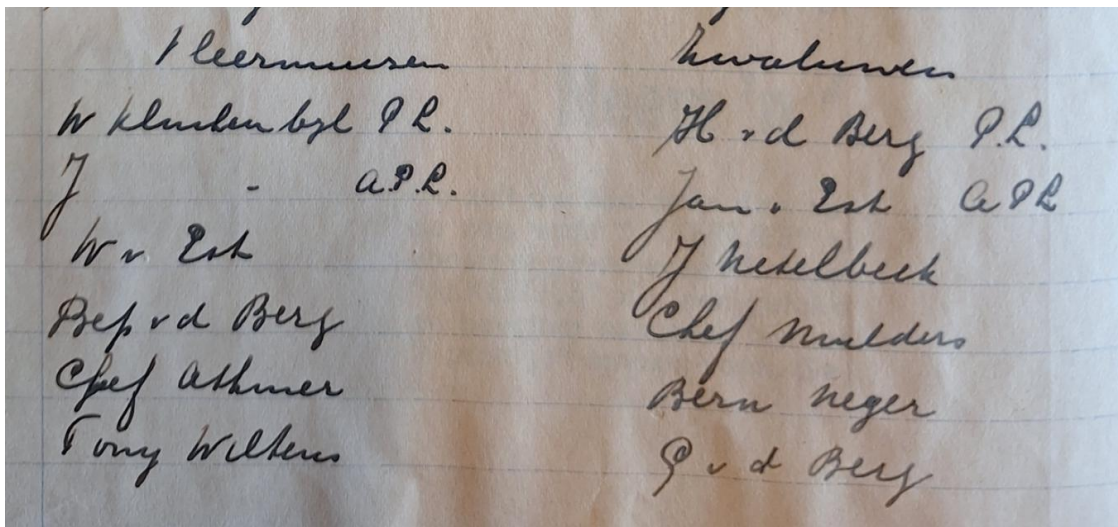 Vleermuisen
W Klinkenbijl P.L.
J - A.P.L.
W v. Esh
Bep v d Berg
Chef Athmer
Tony Wiltens
Zwaluwen
H v d Berg P.L.
Jan v Esh A P L
J Neselbeek
Chef Mulders
Bern Neger
G v d Berg